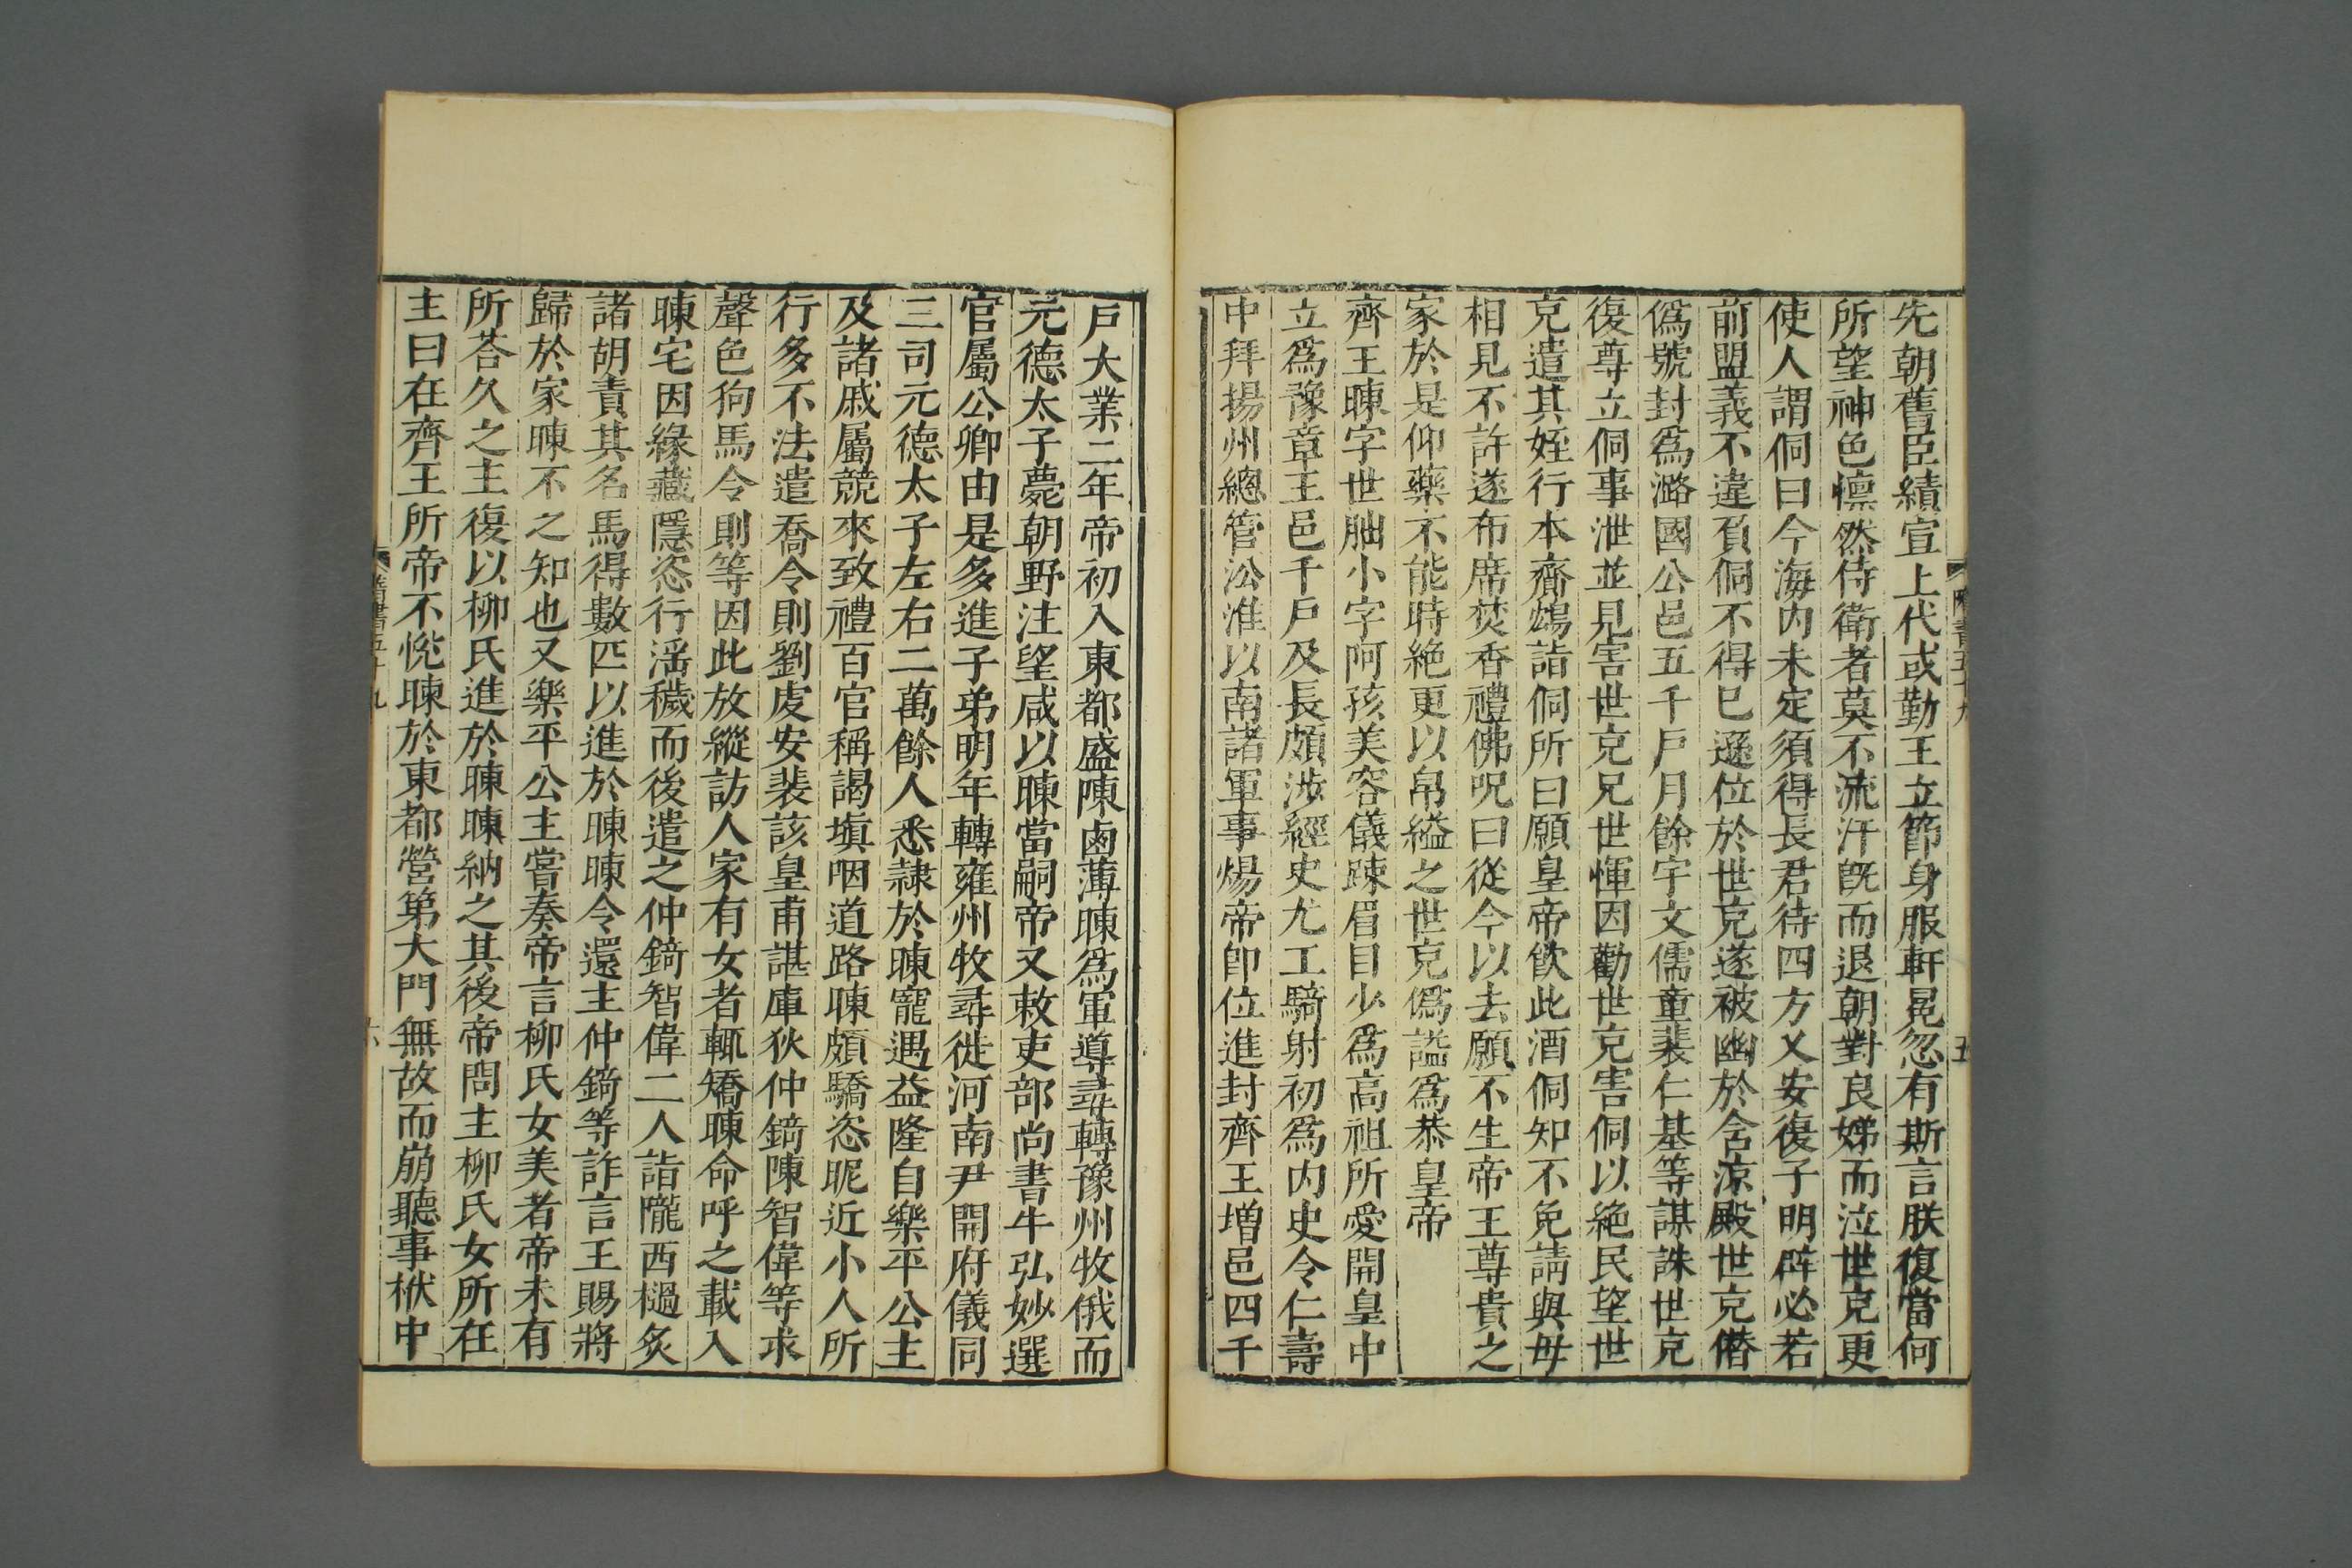 先朝舊臣績宣上代或勤王立節身服軒冕忽有斯言朕復當何
所望神色懍然侍衛者莫不流汗旣而退朝對良娣而泣世克更
使人謂侗曰今海内未定須得長君待四方乂安復子明辟必若
前盟義不違負侗不得已遜位於世克遂被幽於含涼殿世克僭
僞號封爲潞國公邑五千戸月餘宇文儒童裴仁基等謀誅世克
復尊立侗事泄並見害世克兄世惲因勸世克害侗以絶民望世
克遣其姪行本齎鴆詣侗所曰願皇帝飲此酒侗知不免請與母
相見不許遂布席焚香禮佛呪曰從今以去願不生帝王尊貴之
家於是仰藥不能時絶更以帛縊之世克僞謚爲恭皇帝
齊王暕字世朏小字阿孩美容儀疎眉目少爲高祖所愛開皇中
立爲豫章王邑千戸及長頗涉經史尤工騎射初爲内史令仁壽
中拜揚州總管㳂淮以南諸軍事煬帝卽位進封齊王増邑四千
戸大業二年帝初入東都盛陳鹵薄暕爲軍導尋轉豫州牧俄而
元德太子薨朝野注望咸以暕當嗣帝又敕吏部尚書牛弘妙選
官屬公卿由是多進子弟明年轉雍州牧尋徙河南尹開府儀同
三司元德太子左右二萬餘人悉隷於暕寵遇益隆自樂平公主
及諸戚屬競來致禮百官稱謁塡咽道路暕頗驕恣昵近小人所
行多不法遣喬令則劉虔安裴該皇甫諶庫狄仲錡陳智偉等求
聲色狗馬令則等因此放縱訪人家有女者輒矯暕命呼之載入
暕宅因緣藏隱恣行滛穢而後遣之仲錡智偉二人詣隴西檛炙
諸胡責其名馬得數匹以進於暕暕令還主仲錡等詐言王賜將
歸於家暕不之知也又樂平公主嘗奏帝言柳氏女美者帝未有
所荅久之主復以柳氏進於暕暕納之其後帝問主柳氏女所在
主曰在齊王所帝不悅暕於東都營第大門無故而崩聽事栿中